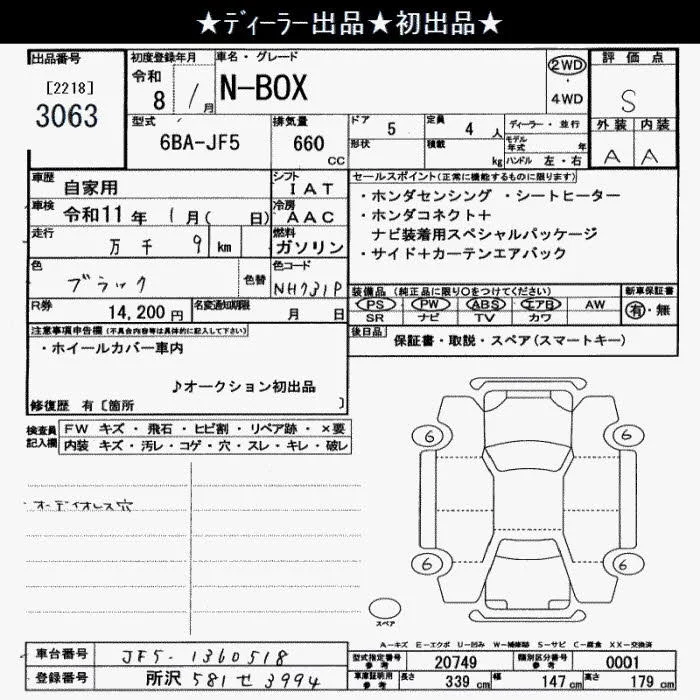 ★ディーラー出品★初出品★
出品番号
[2218]
3063
初度登録年月
令和
8 1月
車名・グレード
N-BOX
2WD
・
4WD
評価点
S
外装 内装
A A
型式
6BA-JF5
排気量
660
CC
ドア 5
形状
定員 4 人
積載 kg
ディーラー・並行
モデル年式 年
ハンドル 左・右
車歴 自家用
シフト
IAT
車検 令和11年 1月( 日)
冷房
AAC
走行 万 千 9 km
燃料
ガソリン
色 ブラック
色替
色コード
NH731P
R券 14,200円
名変通知期限 月 日
セールスポイント(正常に機能するものに限ります)
・ホンダセンシング ・シートヒーター
・ホンダコネクト+
ナビ装着用スペシャルパッケージ
・サイド+カーテンエアバック
装備品 (純正品に限り○をつけてください)
新車保証書
PS PW ABS エアB AW
有・無
SR ナビ TV カワ
後日品
保証書・取説・スペア(スマートキー)
注意事項申告欄(不具合内容等は具体的に記入して下さい)
・ホイールカバー車内
♪オークション初出品
修復歴 有〔箇所 〕
検査員記入欄
FW キズ・飛石・ヒビ割・リペア跡・×要
内装 キズ・汚レ・コゲ・穴・スレ・キレ・破レ
オーディオレス穴
6 6
6 6
スペア
A-キズ E-エクボ U-凹み W-補修跡 S-サビ C-腐食 XX-交換済
車台番号 JF5-1360518
登録番号 所沢 581 せ 3994
型式指定番号 参考 20749
類別区分番号 参考 0001
車庫証明用 参考 長さ 339 cm 幅 147 cm 高さ 179 cm